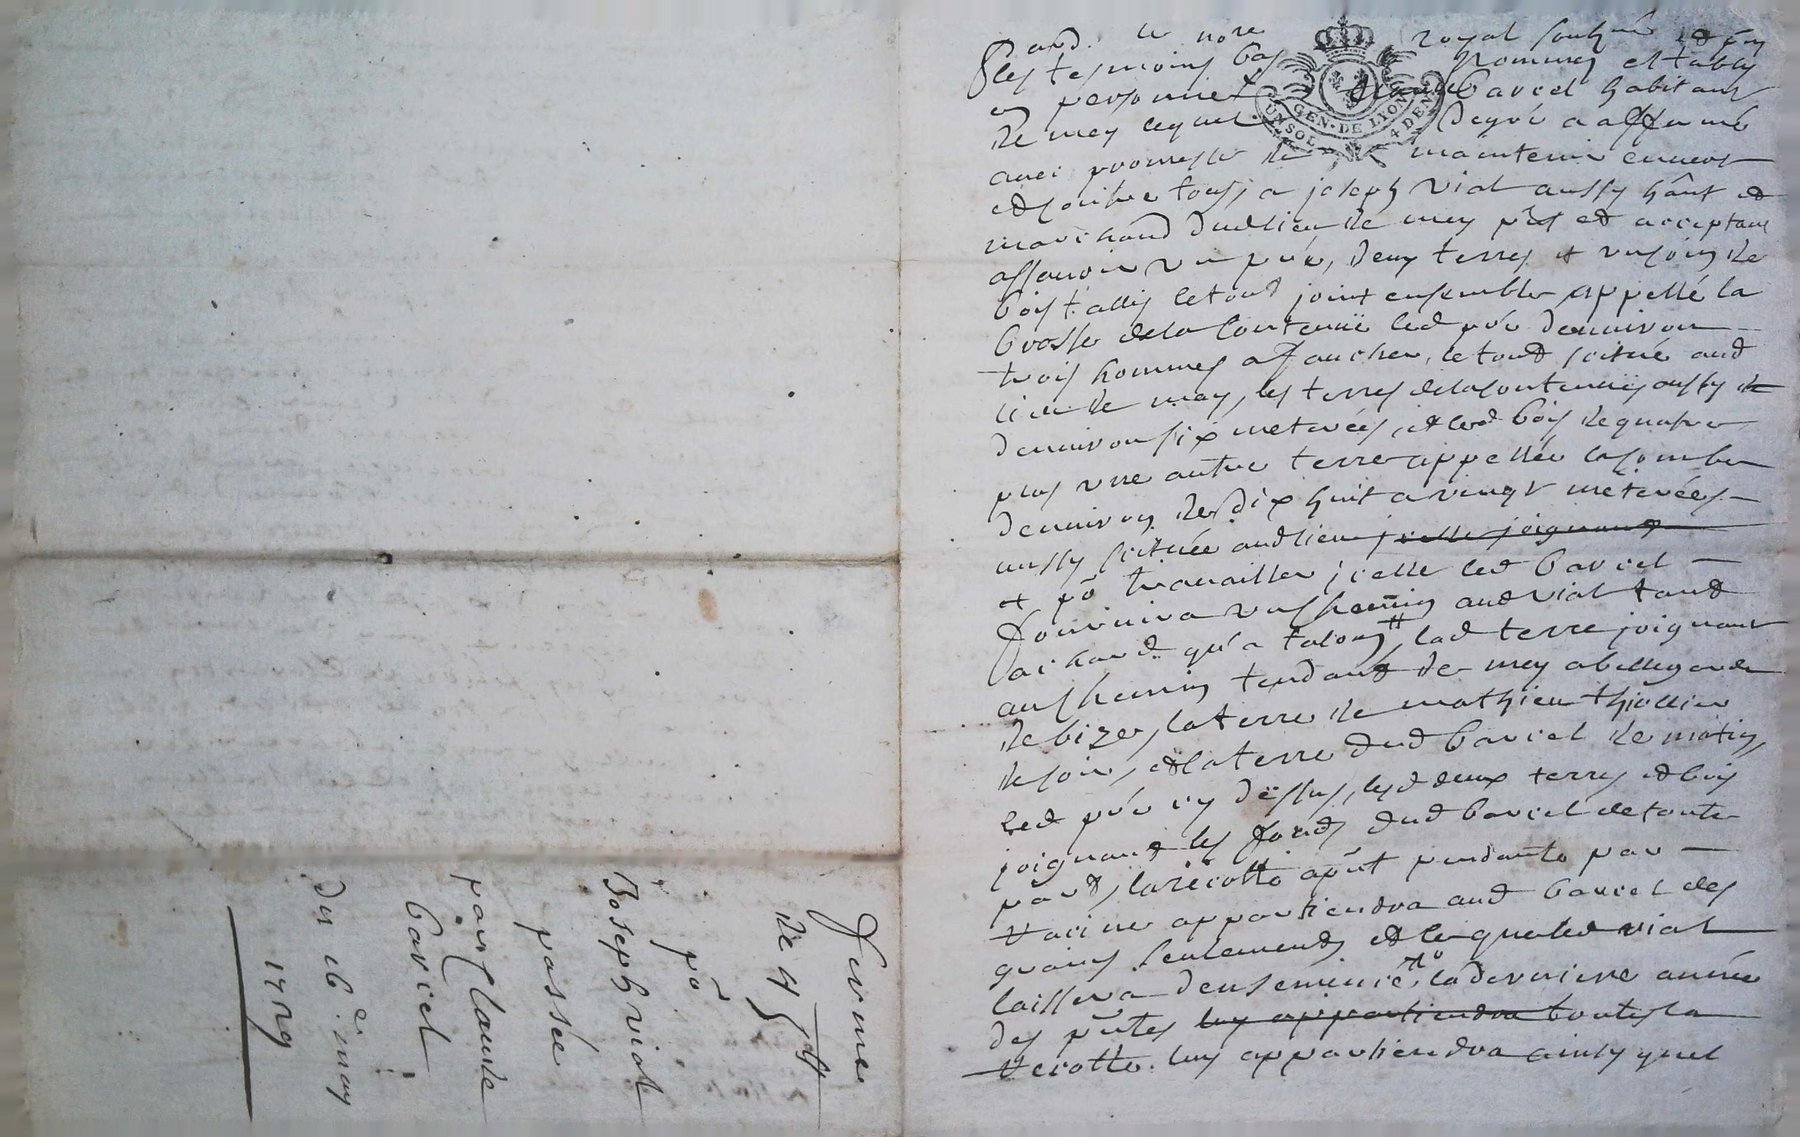 Pard. le nore royal soubné et pn
les tesmoins bas nommes establÿ
en personne Claude Barcel habitant
de mey lequel degré a affermé
avec promesse de maintenir envers
et contre tous, a joseph vial aussy hânt et
marchand dudlieu de mey pnt et acceptant
assavoir un pré, deux terres et un coin de
bois tallis letout joint ensemble appellé la
brosse de la contenüe led pré denviron
trois hommes a faucher, letout scitué aud
lieu de mey, les terres de la contenüe aussy
denviron six meterées, et led bois de quatre
plus une autre terre appellée la combe
denviron de dix huit a vingt meterées
aussy scituée audlieu jcelle joignant
et po travailler jcelle led Barcel
fournira un chemin aud vial tand
a chard qu'a talon, lad terre joignant
au chemin tendant de mey a bellegarde
de bize, la terre de mathieu thiollier
de soir, et la terre dud barcel de matin,
led pré cy dessus, lesd deux terres et bois
joignant les fonds dud barcel de toute
part, la recolte apnt pendante par
racine appartiendra aud barcel des
grains seulement, et lequel led vial
laissera densemencé, la derniere année
des pntes luy appartiendra toutes la
recolte luy appartiendra ainsy quel
ferme
de 45 tt
po
Joseph vial
passée
par Claude
Barcel
du 16e may
1729
GEN. DE LYON
UN SOL 4 DEN